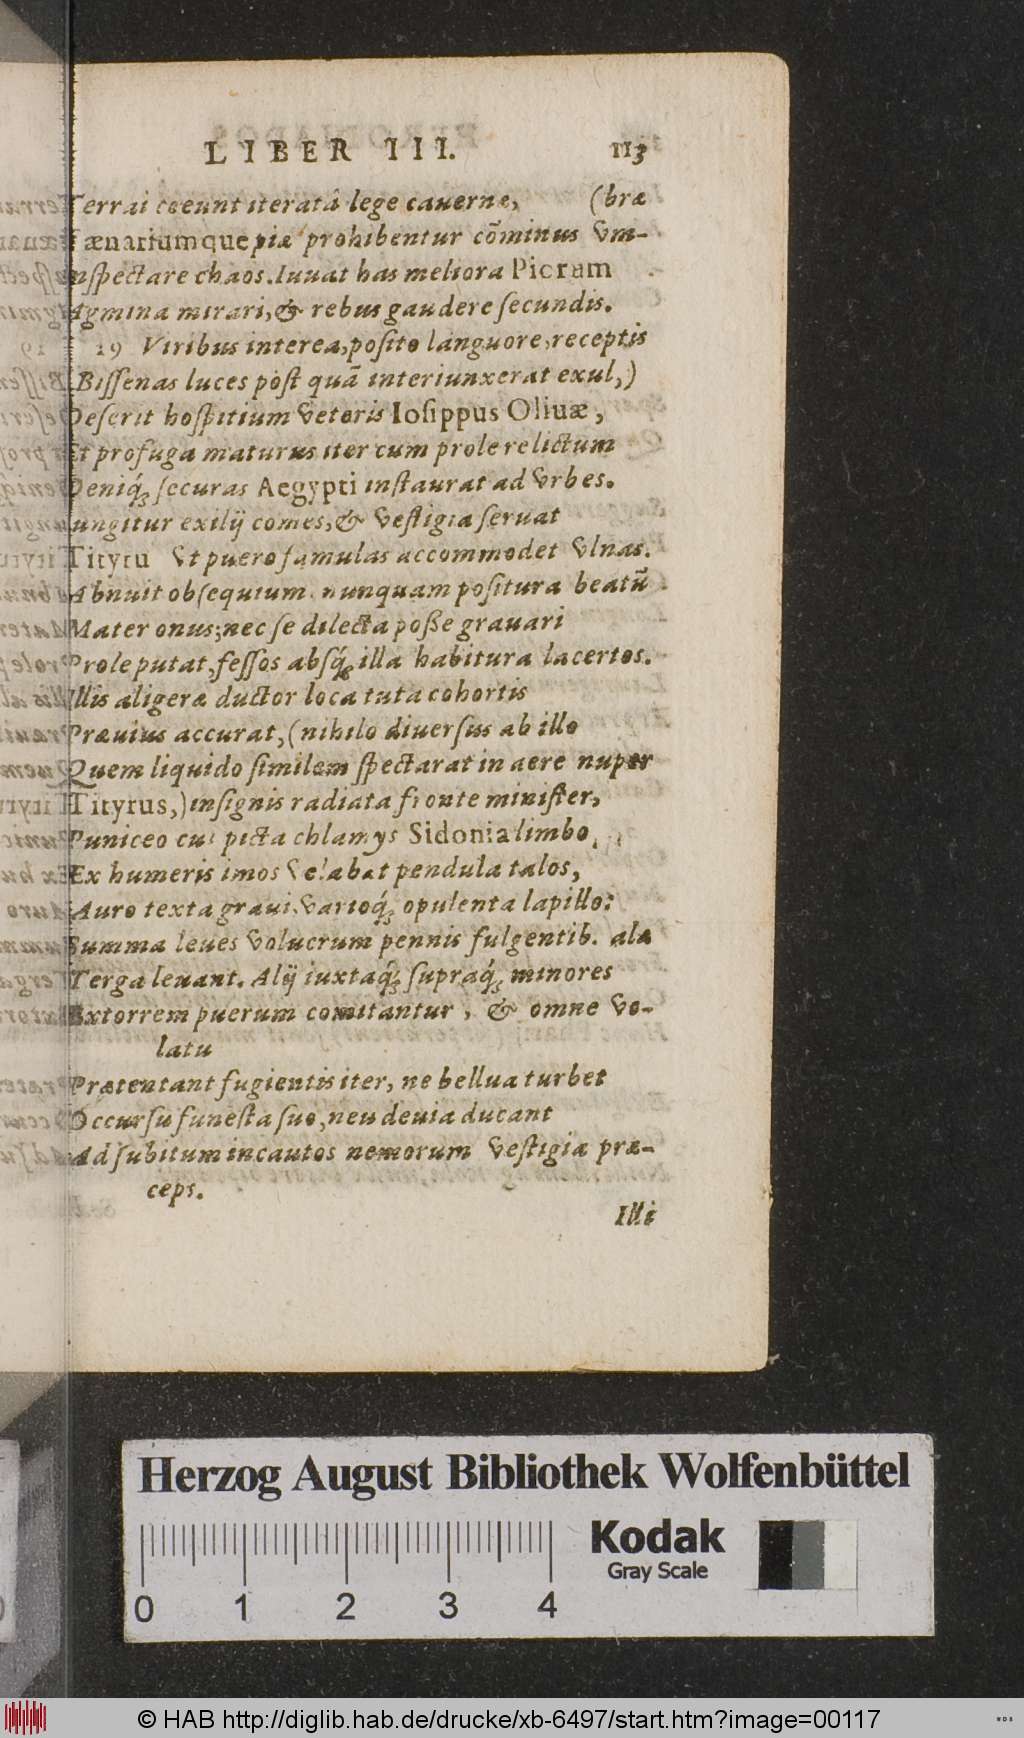 LIBER III. 113
Terrai coeunt iteratâ lege cauernæ, (bræ
Tænariumque piæ prohibentur cōminus vm-
Inspectare chaos. Iuuat has meliora Pieram
Agmina mirari, & rebus gaudere secundis.
19 Viribus interea, posito languore, receptis
(Bissenas luces post quā interiunxerat exul,)
Deserit hospitium veteris Iosippus Oliuæ,
Et profuga maturus iter cum prole relictum
Deniq́; securas Aegypti instaurat ad vrbes.
Iungitur exilij comes, & vestigia seruat
Tityru vt puero famulas accommodet vlnas.
Abnuit obsequium nunquam positura beatū
Mater onus; nec se dilecta posse grauari
Prole putat, fessos absq́; illa habitura lacertos.
Illis aligeræ ductor loca tuta cohortis
Præuius accurat, (nihilo diuersus ab illo
Quem liquido similem spectarat in aere nuper
Tityrus,) insignis radiata fronte minister,
Puniceo cui picta chlamys Sidonia limbo
Ex humeris imos velabat pendula talos,
Auro texta graui, varioq́; opulenta lapillo:
Summa leues volucrum pennis fulgentib. alæ
Terga leuant. Alij iuxtaq́; supraq́; minores
Extorrem puerum comitantur, & omne vo-
latu
Prætentant fugientis iter, ne bellua turbet
Occursu funesta suo, neu deuia ducant
Ad subitum incautos nemorum vestigia præ-
ceps.
Illi
Herzog August Bibliothek Wolfenbüttel
Kodak
Gray Scale
0 1 2 3 4
© HAB http://diglib.hab.de/drucke/xb-6497/start.htm?image=00117